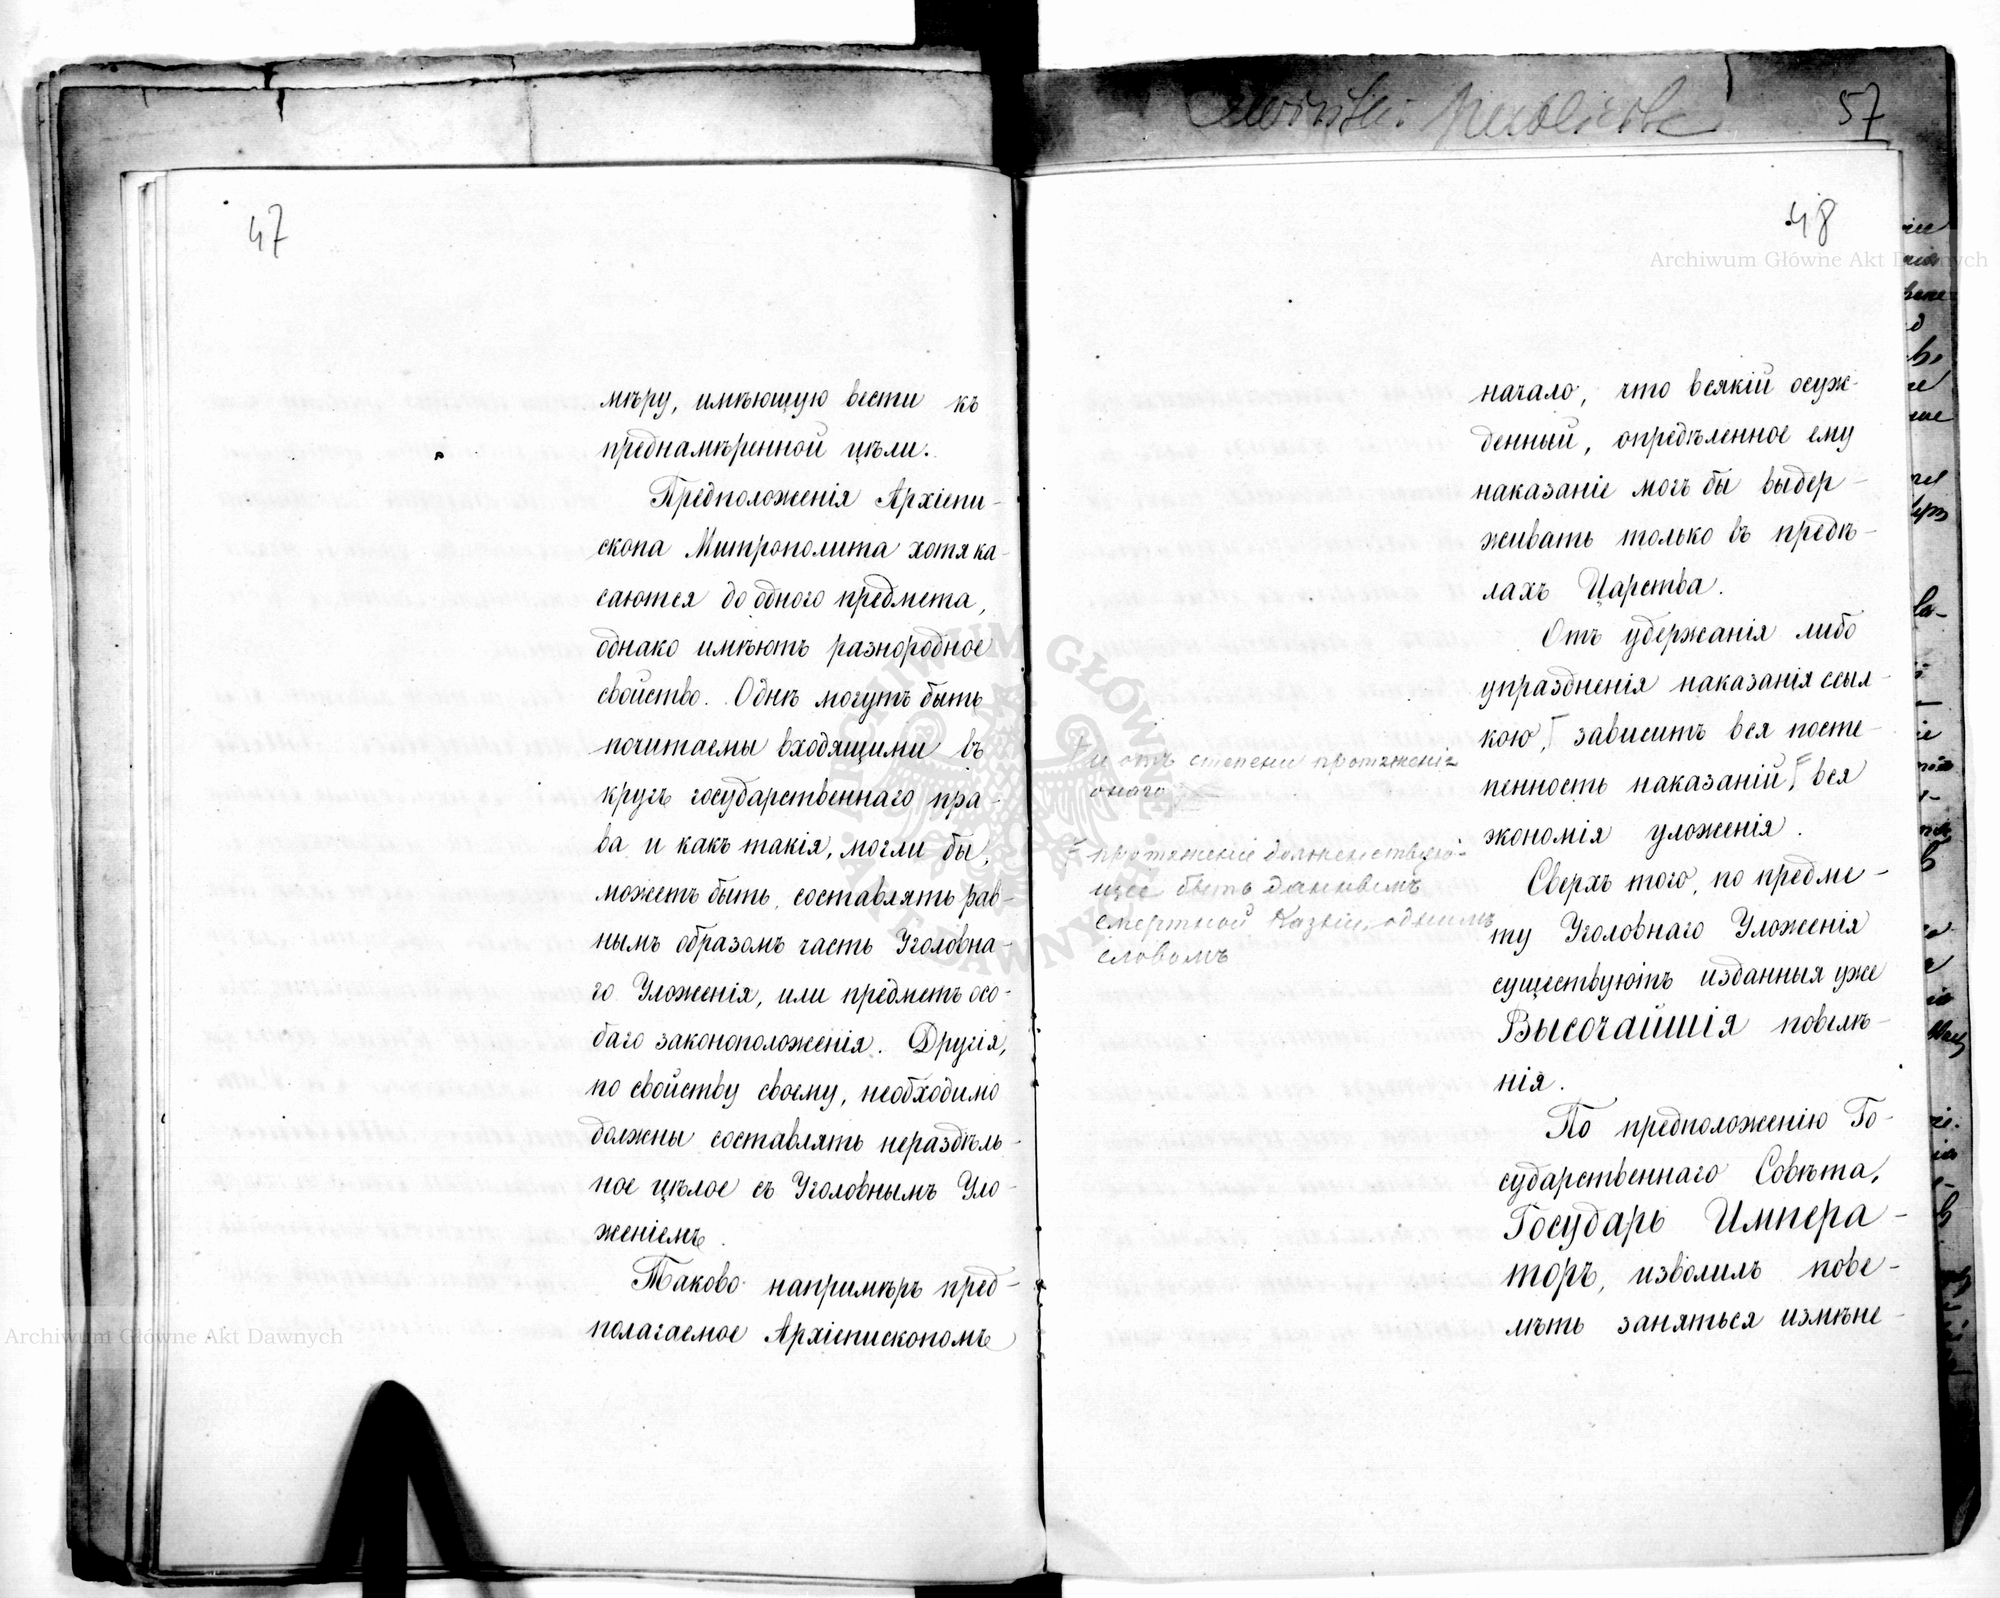 47
мѣру, имѣющую вести къ
преднамѣренной цѣли.
Предположенія Архіепи-
скопа Митрополита хотя ка-
саются до одного предмета,
однако имѣютъ разнородное
свойство. Однѣ могутъ быть
почитаемы входящими въ
кругъ государственнаго пра-
ва и какъ такія, могли бы,
можетъ быть, составлять рав-
нымъ образомъ часть Уголовна-
го Уложенія, или предметъ осо-
баго законоположенія. Другія,
по свойству своему, необходимо
должны составлять нераздѣль-
ное цѣлое съ Уголовнымъ Уло-
женіемъ.
Таково напримѣръ пред-
полагаемое Архіепископомъ
57
48
начало, что всякій осуж-
денный, опредѣленное ему
наказаніе могъ бы выдер-
живать только въ предѣ-
лахъ Царства.
Отъ удержанія либо
упраздненія наказанія ссыл-
кою, зависитъ вся посте-
пенность наказаній, вся
экономія уложенія.
Сверхъ того, по предме-
ту Уголовнаго Уложенія
существуютъ изданныя уже
Высочайшія повелѣ-
нія.
По предположенію Го-
сударственнаго Совѣта,
Государь Импера-
торъ, изволилъ пове-
лѣть заняться измѣне-
и отъ степени протяженія
онаго
протяженіе долженствую-
щее быть даннымъ
смертной Казни, однимъ
словомъ
Archiwum Główne Akt Dawnych
Archiwum Główne Akt Dawnych
ARCHIWUM GŁÓWNE AKT DAWNYCH